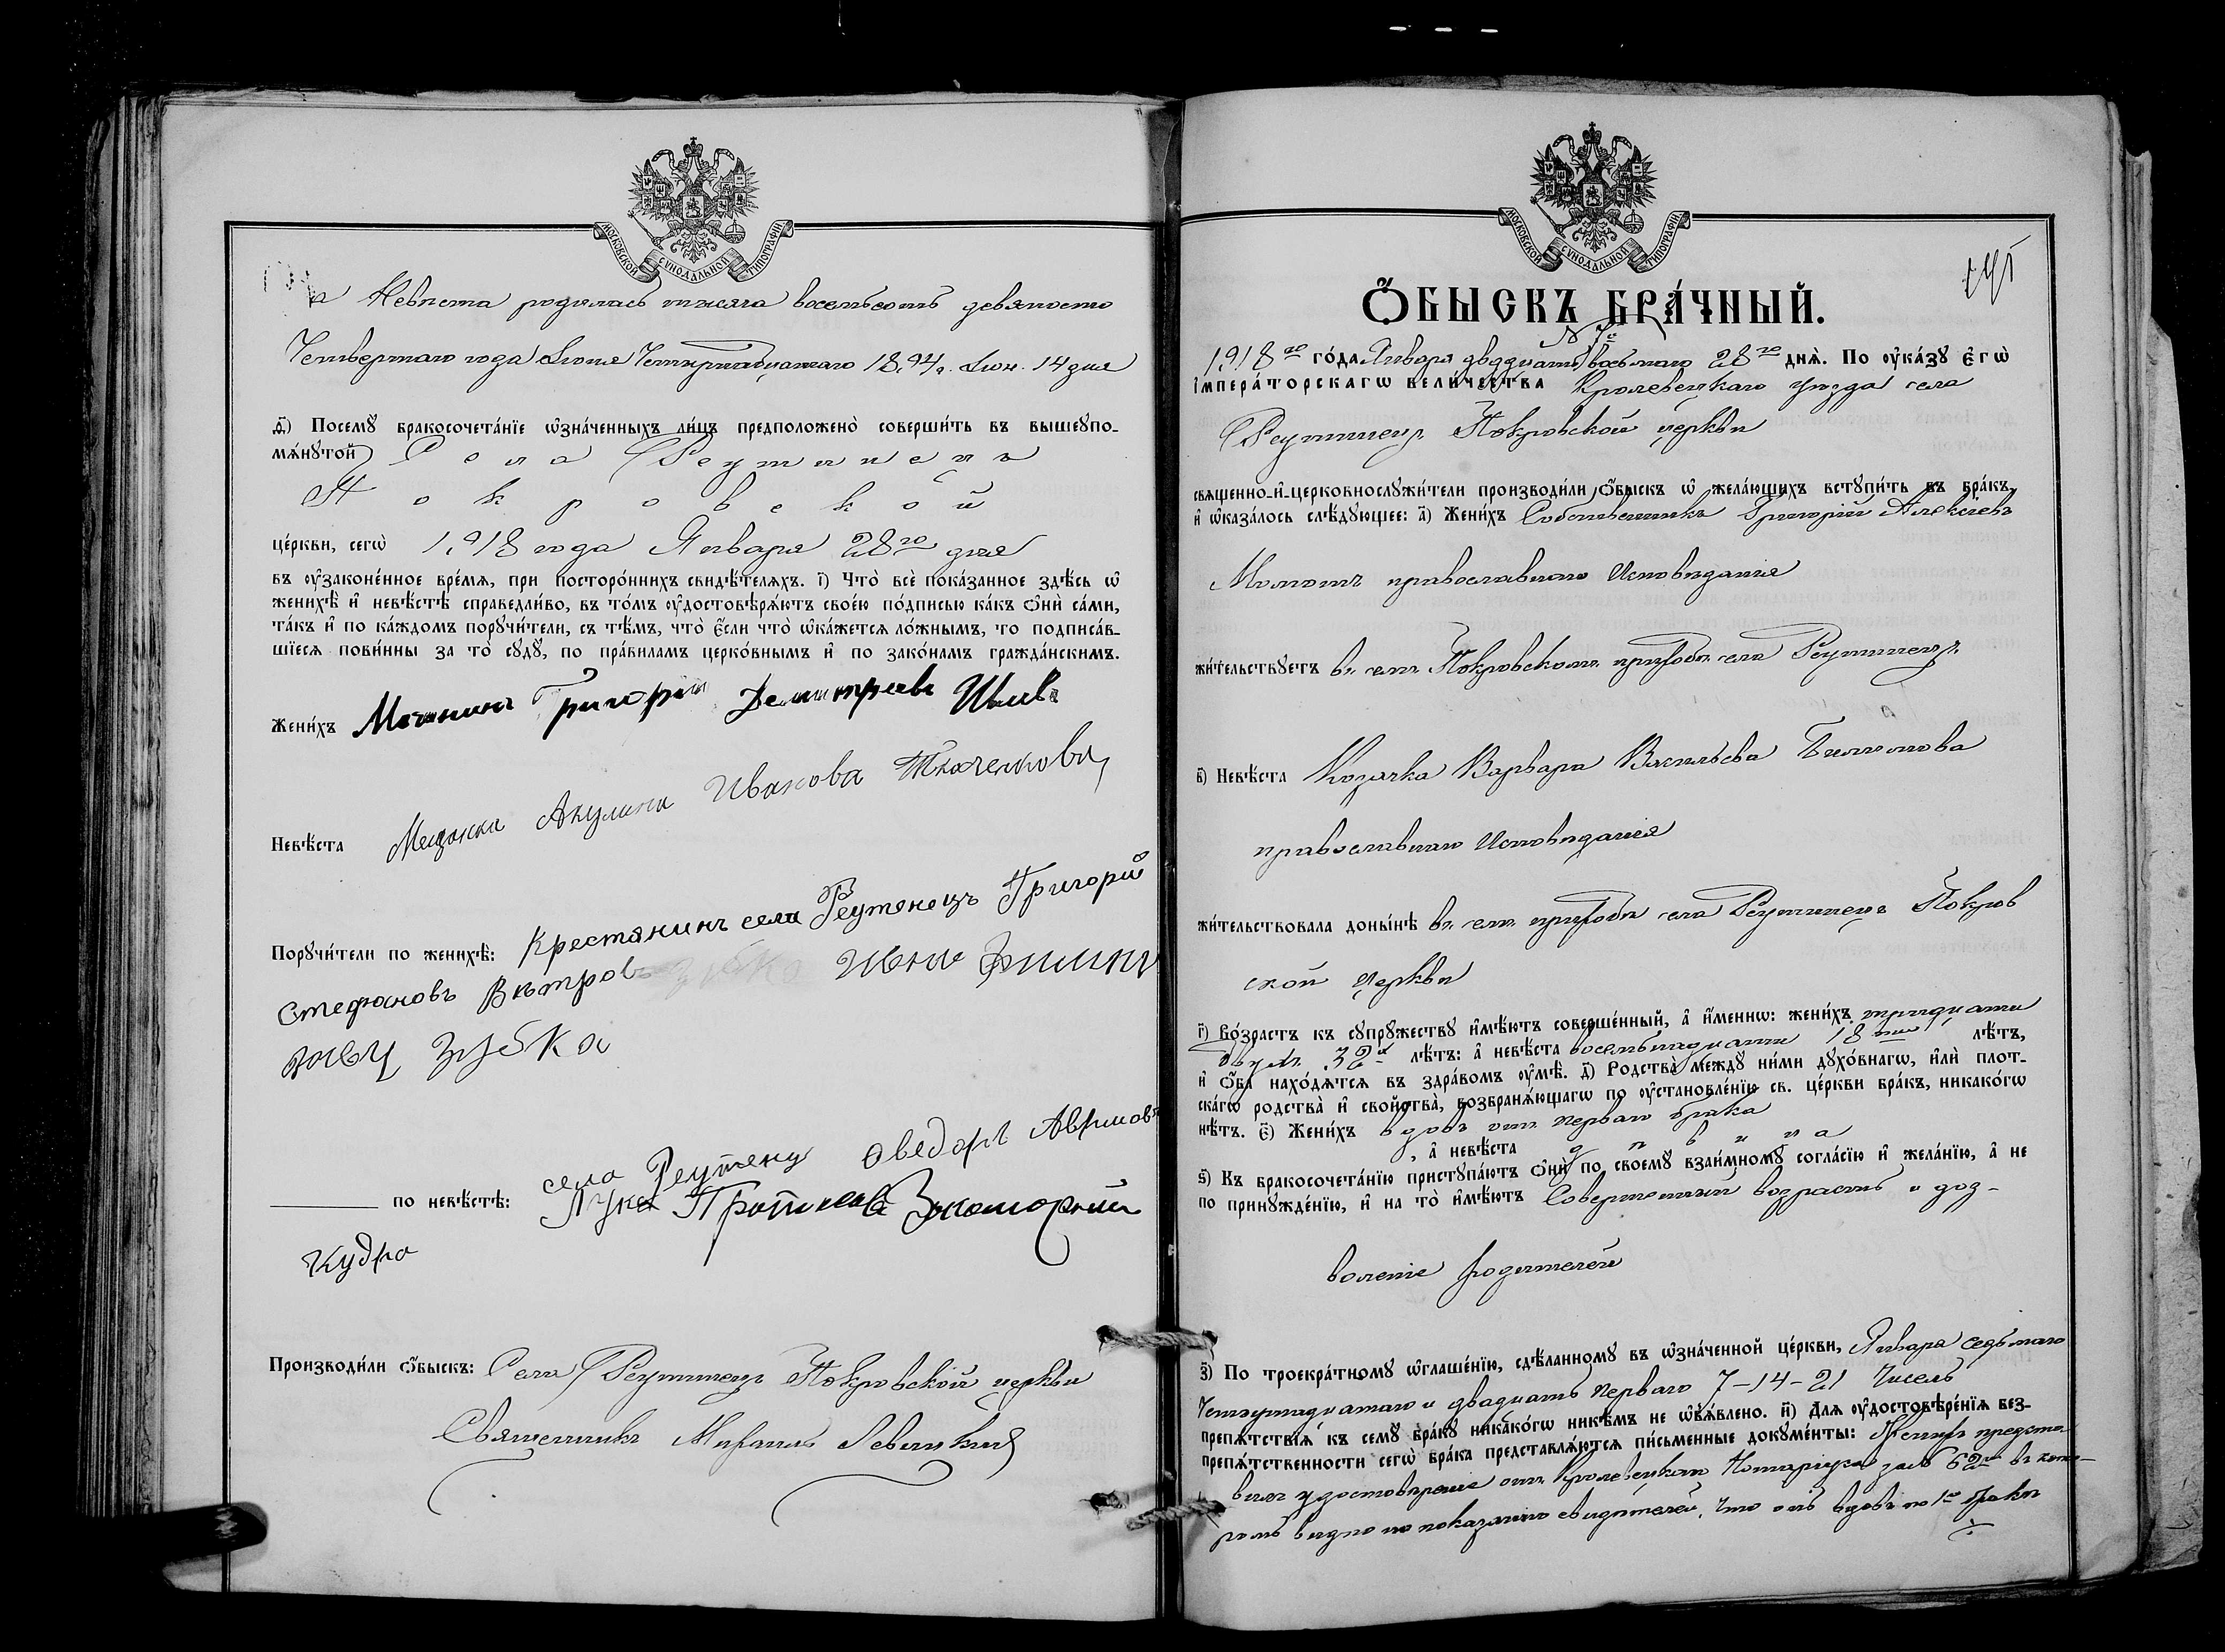 МОСКОВСКОЙ СѴНОДАЛЬНОЙ ТИПОГРАФІИ
а Невѣста родилась тысяча восемьсотъ девяносто
Четвертаго года Іюня Четырнадцатаго 1894 г. Іюн. 14 дня
д҃) Посемꙋ̀ бракосочета́нїе ѡ҆зна́ченныхъ ли́цъ предположено̀ соверши́ть въ вышеꙋпо-
мѧ́нꙋтой Села Реутинецъ
Покровской
це́ркви, сегѡ̀ 1918 года Января 28го дня
въ ᲂу҆законе́нное вре́мѧ, при посторо́ннихъ свидѣ́телѧхъ. і҃) Что̀ всѐ пока́занное здѣ́сь ѡ҆
женихѣ̀ и҆ невѣ́стѣ справедли́во, въ то́мъ ᲂу҆достовѣрѧ́ютъ свое́ю по́дписью ка́къ ѻ҆нѝ са́ми,
та́къ и҆ по ка́ждомъ порꙋчи́тели, съ тѣ́мъ, что̀ є҆́сли что̀ ѡ҆ка́жетсѧ ло́жнымъ, то подписа́в-
шїесѧ пови́нны за то̀ сꙋдꙋ̀, по пра́виламъ церко́внымъ и҆ по зако́намъ гражда́нскимъ.
Жени́хъ Мещанинъ Григорий Демитриевъ
Невѣ́ста Мещанка Акулина Иванова Ткаченкова
Порꙋчи́тели по женихѣ̀: Крестянинъ села Реутенецъ Григорій
Стефановъ Вѣтровъ
зубка
по невѣ́стѣ: села Реутенц Оведоръ Аврамовъ
Лука
Кудра
Производи́ли ѻ҆́быскъ: Села Реутинецъ Покровской церкви
Священникъ Михаилъ Левицкій
МОСКОВСКОЙ СѴНОДАЛЬНОЙ ТИПОГРАФІИ
Ѻ҆́БЫСКЪ БРА́ЧНЫЙ.
1918го го́да Января двадцать восьмаго 28го днѧ̀. По ᲂу҆ка́зꙋ є҆гѡ̀
і҆мпера́торскагѡ вели́чества Кролевецкаго уѣзда села
Реутинецъ Покровской церкви
свѧщенно-и҆-церковнослꙋжи́тели производи́ли ѻ҆́быскъ ѡ҆ жела́ющихъ встꙋпи́ть въ бра́къ,
и҆ ѡ҆каза́лось слѣ́дꙋющее: а҃) Жени́хъ Собственникъ Григорій Алексіевъ
Момотъ православнаго Исповѣданія
жи́тельствꙋетъ въ сем. Покровскомъ приходѣ села Реутинецъ
в҃) Невѣ́ста Козачка Варвара Васильева
православнаго Исповѣданія
жи́тельствовала доны́нѣ въ сем. приходѣ села Реутинецъ Покров
ской церкви
г҃) Во́зрастъ къ сꙋпрꙋ́жествꙋ и҆мѣ́ютъ соверше́нный, а҆ и҆́меннѡ: жени́хъ тридцати
двухъ 32х лѣ́тъ: а҆ невѣ́ста восемьнадцати 18ти лѣ́тъ,
и҆ ѻ҆́ба нахо́дѧтсѧ въ здра́вомъ ᲂу҆мѣ̀. д҃) Родства̀ междꙋ̀ ни́ми дꙋхо́внагѡ, и҆лѝ плот-
ска́гѡ родства̀ и҆ сво́йства, возбранѧ́ющагѡ по ᲂу҆становле́нїю св. це́ркви бра́къ, никако́гѡ
нѣ́тъ. є҃) Жени́хъ вдовъ отъ перваго брака
, а҆ невѣ́ста дѣвица
ѕ҃) Къ бракосочета́нїю пристꙋпа́ютъ ѻ҆нѝ по своемꙋ̀ взаи́мномꙋ согла́сїю и҆ жела́нїю, а҆ не
по принꙋжде́нїю, и҆ на то̀ и҆мѣ́ютъ Совершенный возрастъ и доз-
воленіе родителей
з҃) По троекра́тномꙋ ѡ҆глаше́нїю, сдѣ́ланномꙋ въ ѡ҆зна́ченной це́ркви, Января седьмаго
Четырнадцатаго и двадцать перваго 7-14-21 Чиселъ
препѧ́тствїѧ къ семꙋ̀ бра́кꙋ никако́гѡ никѣ́мъ не ѡ҆бъѧ́влено. и҃) Длѧ ᲂу҆достовѣре́нїѧ без-
препѧ́тственности сегѡ̀ бра́ка представлѧ́ютсѧ пи́сьменные докꙋме́нты: Женихъ предста-
вилъ удостовѣреніе отъ Кролевецкаго Нотаріуса за № 62 въ кото-
ромъ видно по показанію свидѣтелей, что онъ вдовъ по 1му бракѣ